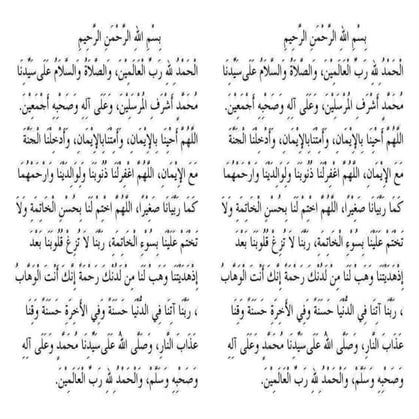 بِسْمِ اللهِ الرَّحْمَنِ الرَّحِيمِ
الْحَمْدُ لِلهِ رَبِّ الْعَالَمِيْنَ، وَالصَّلَاةُ وَالسَّلَامُ عَلَى سَيِّدِنَا
مُحَمَّدٍ أَشْرَفِ الْمُرْسَلِيْنَ، وَعَلَى آلِهِ وَصَحْبِهِ أَجْمَعِيْنَ.
اللَّهُمَّ أَحْيِنَا بِالْإِيْمَانِ، وَأَمِتْنَابِالْإِيْمَانِ، وَأَدْخِلْنَا الْجَنَّةَ
مَعَ الْإِيْمَانِ، اللَّهُمَّ اغْفِرْلَنَا ذُنُوبَنَا وَلِوَالِدَيْنَا وَارْحَمْهُمَا
كَمَا رَبَّيَانَا صَغِيْرًا، اللَّهُمَّ اخْتِمْ لَنَا بِحُسْنِ الْخَاتِمَةِ وَلَا
تَخْتِمْ عَلَيْنَا بِسُوْءِ الْخَاتِمَةِ، رَبَّنَا لَا تُزِغْ قُلُوبَنَا بَعْدَ
إِذْهَدَيْتَنَا وَهَبْ لَنَا مِنْ لَدُنْكَ رَحْمَةً إِنَّكَ أَنْتَ الْوَهَّابُ
، رَبَّنَا آتِنَا فِي الدُّنْيَا حَسَنَةً وَفِي الْأَخِرَةِ حَسَنَةً وَقِنَا
عَذَابَ النَّارِ، وَصَلَّى اللهُ عَلَى سَيِّدِنَا مُحَمَّدٍ وَعَلَى آلِهِ
وَصَحْبِهِ وَسَلَّمْ، وَالْحَمْدُ لِلهِ رَبِّ الْعَالَمِيْنَ.
بِسْمِ اللهِ الرَّحْمَنِ الرَّحِيمِ
الْحَمْدُ لِلهِ رَبِّ الْعَالَمِيْنَ، وَالصَّلَاةُ وَالسَّلَامُ عَلَى سَيِّدِنَا
مُحَمَّدٍ أَشْرَفِ الْمُرْسَلِيْنَ، وَعَلَى آلِهِ وَصَحْبِهِ أَجْمَعِيْنَ.
اللَّهُمَّ أَحْيِنَا بِالْإِيْمَانِ، وَأَمِتْنَابِالْإِيْمَانِ، وَأَدْخِلْنَا الْجَنَّةَ
مَعَ الْإِيْمَانِ، اللَّهُمَّ اغْفِرْلَنَا ذُنُوبَنَا وَلِوَالِدَيْنَا وَارْحَمْهُمَا
كَمَا رَبَّيَانَا صَغِيْرًا، اللَّهُمَّ اخْتِمْ لَنَا بِحُسْنِ الْخَاتِمَةِ وَلَا
تَخْتِمْ عَلَيْنَا بِسُوْءِ الْخَاتِمَةِ، رَبَّنَا لَا تُزِغْ قُلُوبَنَا بَعْدَ
إِذْهَدَيْتَنَا وَهَبْ لَنَا مِنْ لَدُنْكَ رَحْمَةً إِنَّكَ أَنْتَ الْوَهَّابُ
، رَبَّنَا آتِنَا فِي الدُّنْيَا حَسَنَةً وَفِي الْأَخِرَةِ حَسَنَةً وَقِنَا
عَذَابَ النَّارِ، وَصَلَّى اللهُ عَلَى سَيِّدِنَا مُحَمَّدٍ وَعَلَى آلِهِ
وَصَحْبِهِ وَسَلَّمْ، وَالْحَمْدُ لِلهِ رَبِّ الْعَالَمِيْنَ.